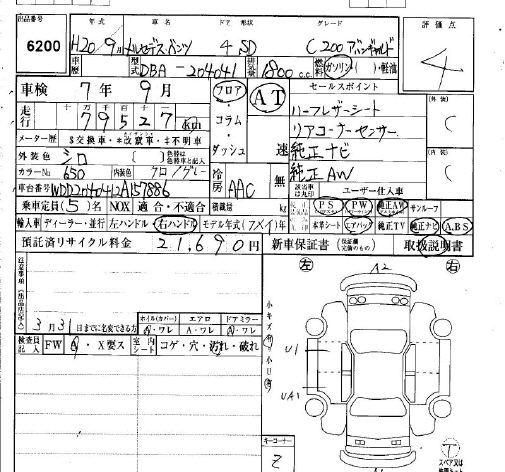 出品番号 年式 車名 ドア 形状 グレード 評価点
6200 H20/9月 メルセデス・ベンツ 4 SD C200アバンギャルド 4
車歴 型式 DBA-204041 排気量 1800 c.c. 燃料 ガソリン・( )・軽油
車検 7年9月 フロア AT セールスポイント (外装)
走行 十万 万 千 百 十 一 コラム・ ハーフレザーシート C
79527 km ダッシュ リアコーナーセンサー
メーター歴 $交換車・*改竄車・#不明車 速 純正ナビ (内装)
外装色 シロ ( ) 冷房 AAC 無 純正AW C
カラーNo. 650 内装色 クロ/グレー ユーザー仕入車
車台番号 WDD2040412A157886
乗車定員(5)名 NOX 適合・不適合 積載量 kg PS PW 純正AW サンルーフ
輸入車 ディーラー・並行 左ハンドル 右ハンドル モデル年式( 年) 本革シート エアバッグ 純正TV 純正ナビ A.B.S
預託済リサイクル料金 21,690円 新車保証書 取扱説明書
注意事項
左 A2 右
3月31日までに名変できる方
ホイル(カバー) エアロ ドアミラー
A・ワレ A・ワレ A・ワレ
小キズ 小凹
U1
UA1
検査員記入 FW A・X要ス 室内シート コゲ・穴・汚れ・破れ
コーナー
2
T
スペア又は